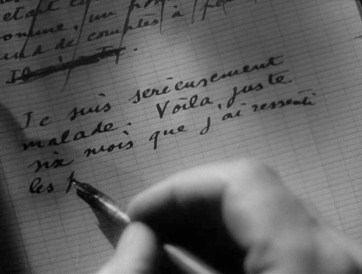 était
comme, un
de comptes à
Je suis sérieusement
malade. Voilà, juste
six mois que j'ai ressenti
les p